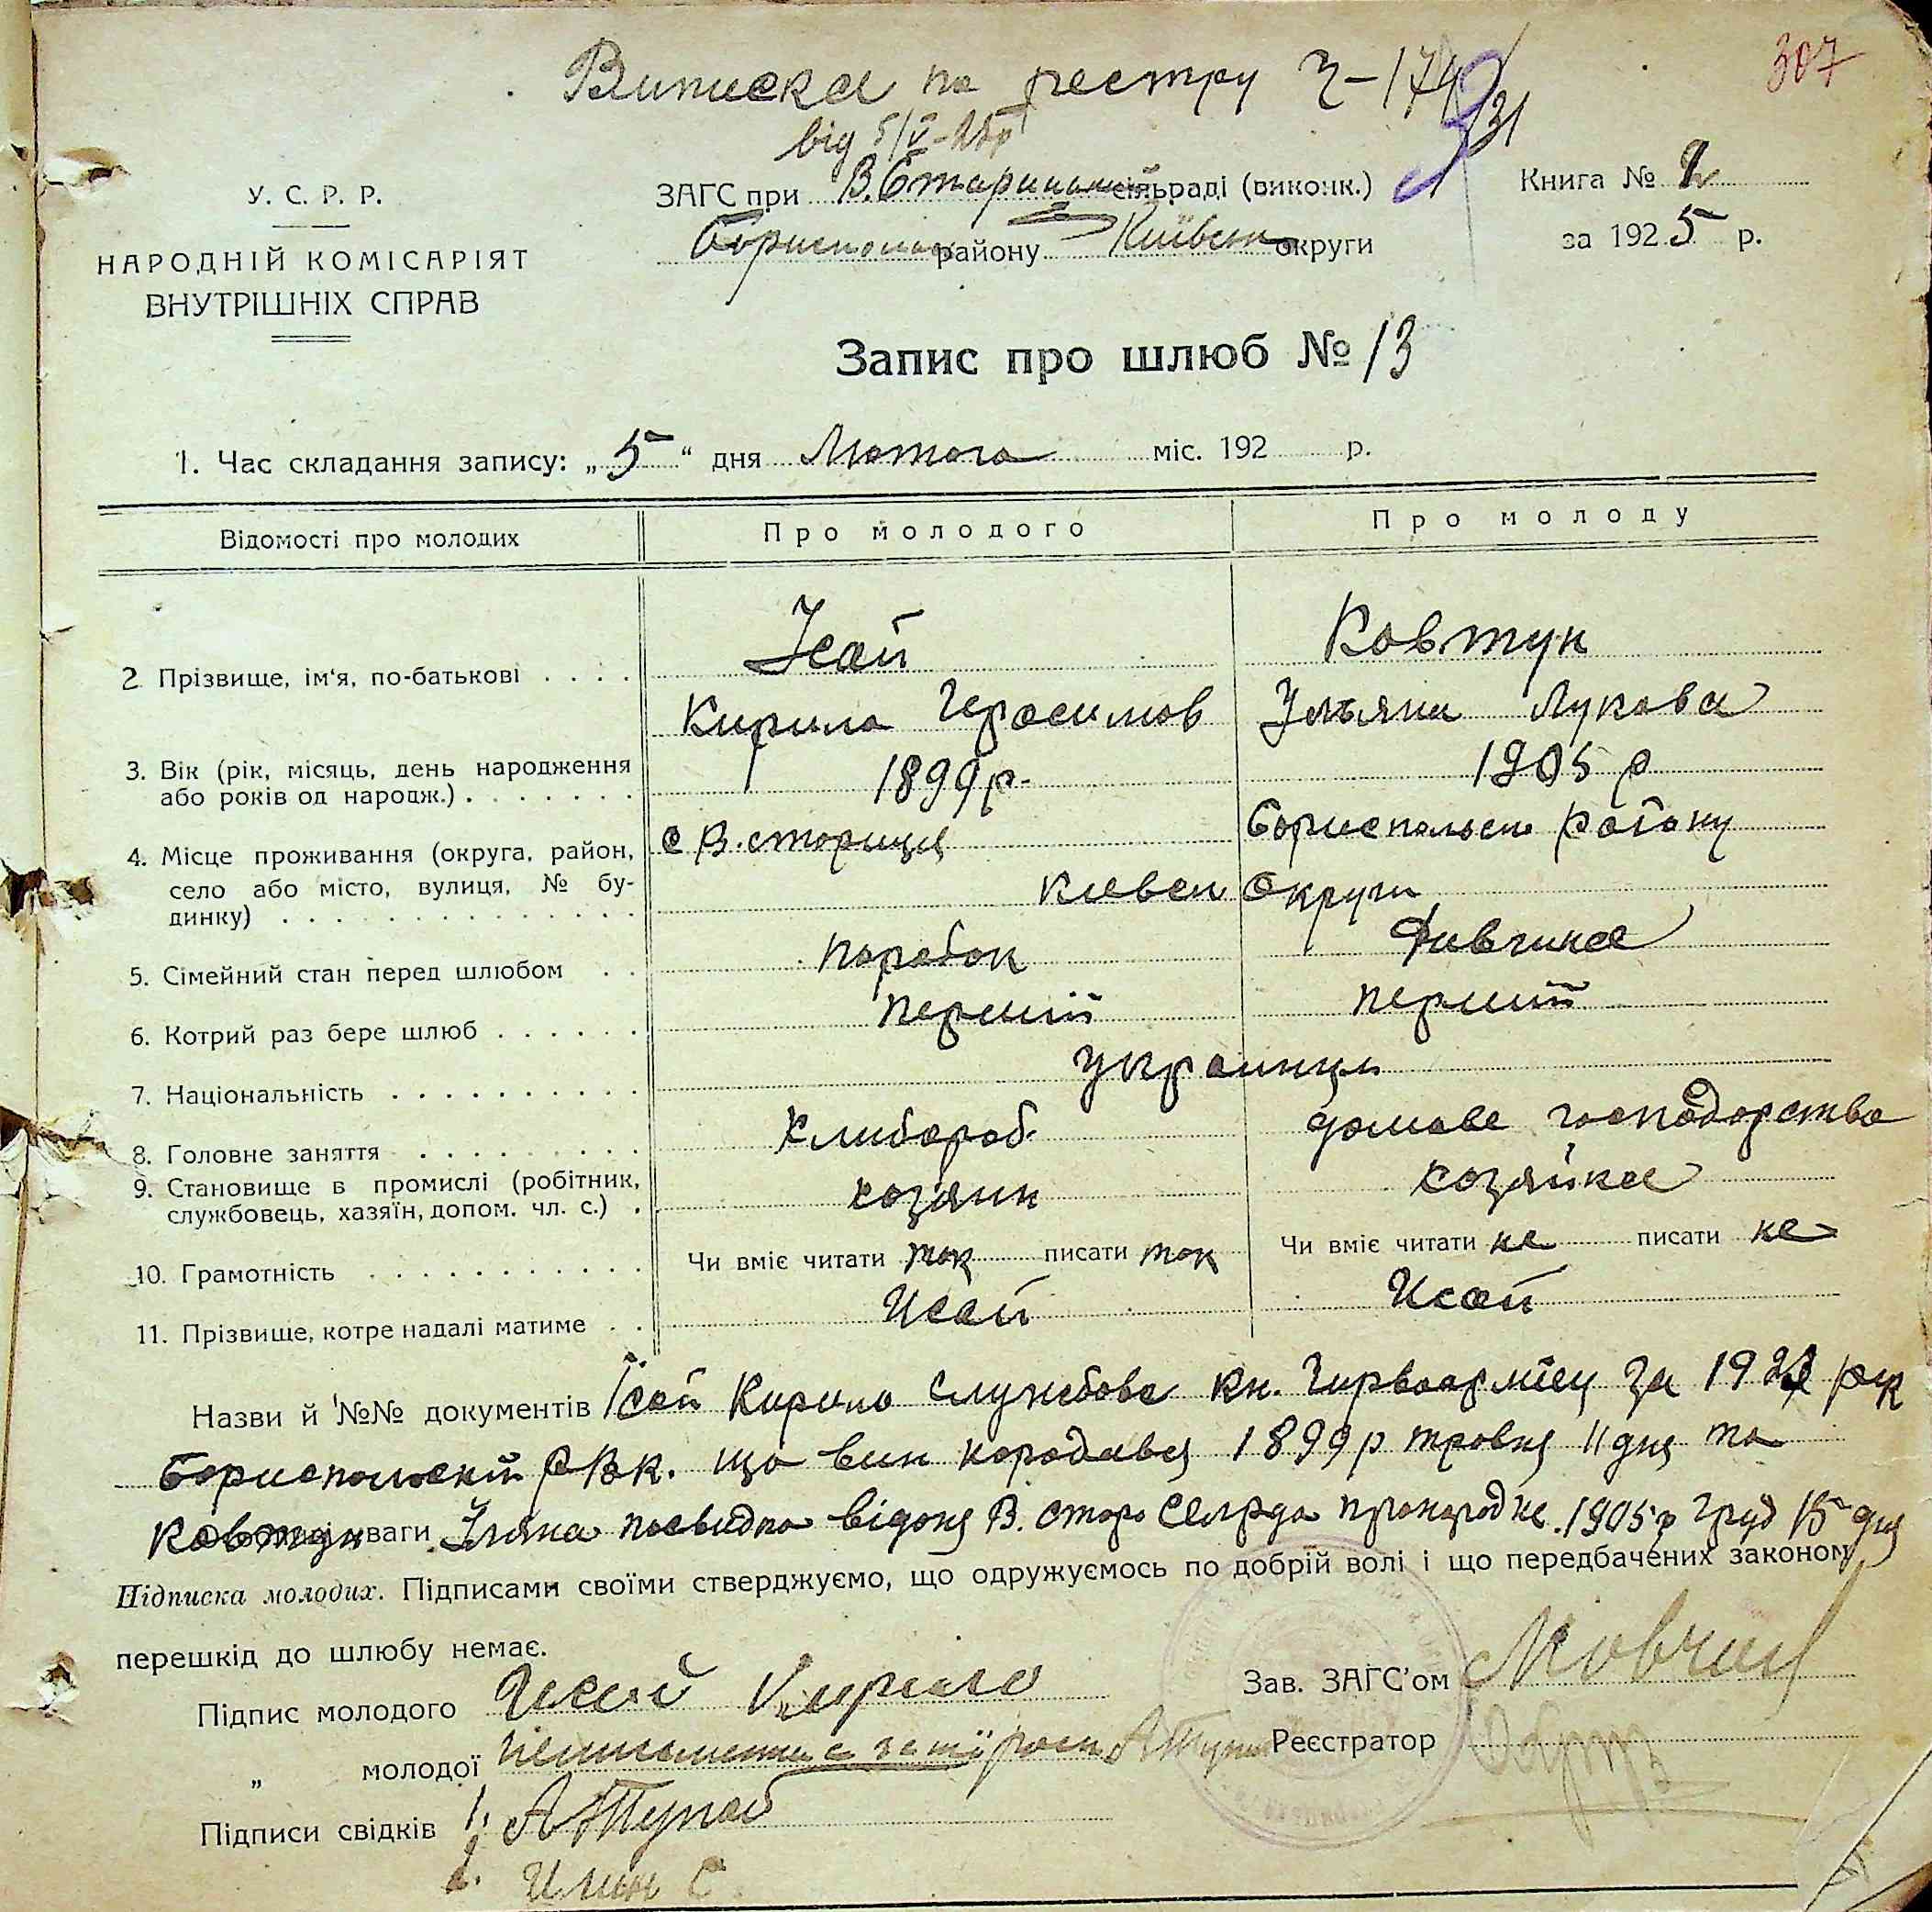 307
Виписка по реєстру З-174
31
від 5/V-
У. С. Р. Р.
НАРОДНІЙ КОМІСАРІЯТ
ВНУТРІШНІХ СПРАВ
ЗАГС при В.Старицький сільраді (виконк.)
Бориспольськ району Київськ округи
Книга № 2
за 1925 р.
Запис про шлюб № 13
1. Час складання запису: „5“ дня Лютого міс. 192 р.
Відомості про молодих Про молодого Про молоду
2 Прізвище, ім'я, по-батькові . . . . Ісай Ковтун
Кирило Герасимов Ульяна Лукова
3. Вік (рік, місяць, день народження
або років од народж.) . . . . . . . 1899 р. 1905 р
4. Місце проживання (округа, район, с В. сториця Бориспольск району
село або місто, вулиця, № бу-
динку) . . . . . . . . . . . . . . Киевск Округи
5. Сімейний стан перед шлюбом . . паробок Дивчина
6. Котрий раз бере шлюб . . . . . . перший перший
7. Національність . . . . . . . . . . украинци
8. Головне заняття . . . . . . . . . хлибороб. домове господорство
9. Становище в промислі (робітник,
службовець, хазяїн, допом. чл. с.) . хозяин хозяйка
10. Грамотність . . . . . . . . . . . Чи вміє читати так писати так Чи вміє читати не писати не
11. Прізвище, котре надалі матиме . . Исай Исай
Назви й №№ документів Ісай Кирило Службова кн. Чирвоармієц за 192 рик
Бориспольский РВК. що вин народився 1899 р травня 11 дня та
Ковтун уваги Уляна посвидка відоня В. Старо Селрда про народже. 1905 р груд 15 дня
Підписка молодих. Підписами своїми стверджуємо, що одружуємось по добрій волі і що передбачених законом
перешкід до шлюбу немає.
Підпис молодого Исай Кирило
„ молодої неписьменна а за неї росп АТупай
Підписи свідків 1. АТупай
2. Илин С
Зав. ЗАГС'ом Мовчан
Реєстратор